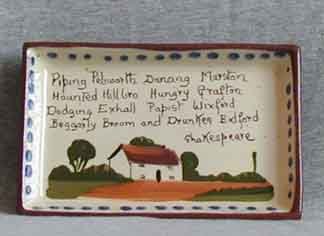 Piping Pebworth Dancing Marston
Haunted Hillbro Hungry Grafton
Dodging Exhall Papist Wixford
Beggarly Broom and Drunken Bidford
Shakespeare